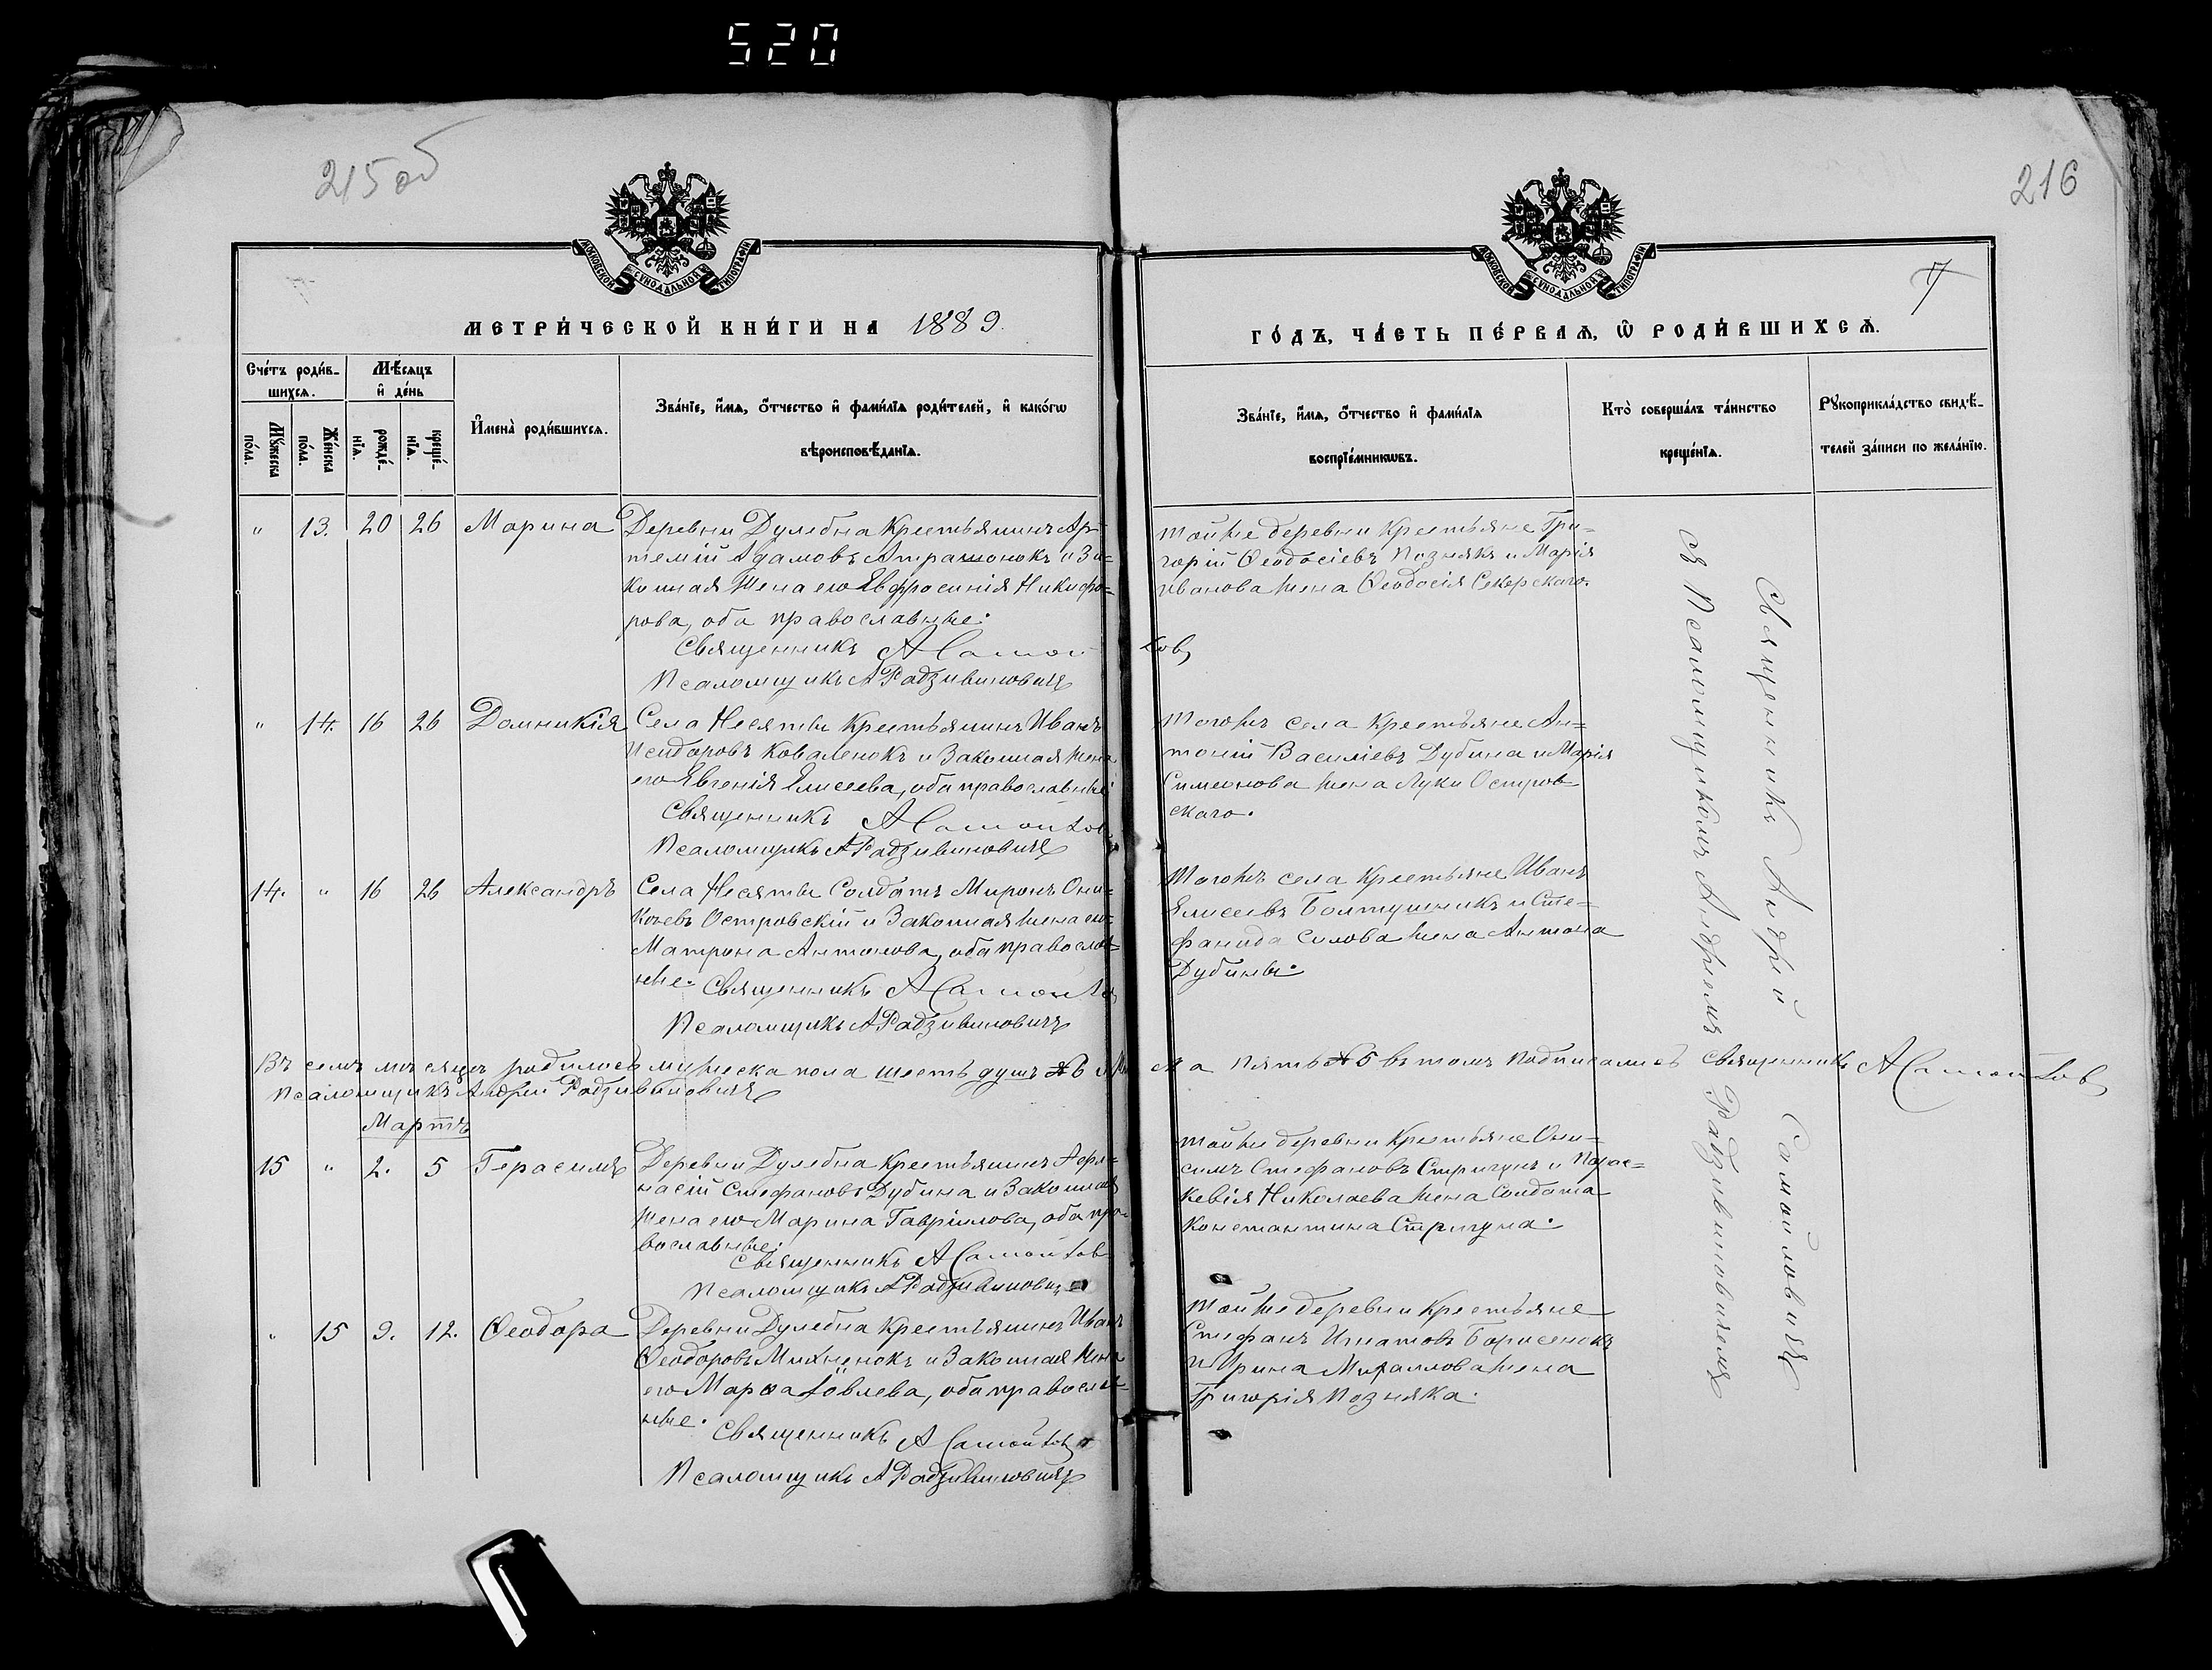 520
215об
216
7
МОСКОВСКОЙ СѴНОДАЛЬНОЙ ТИПОГРАФІИ
МОСКОВСКОЙ СѴНОДАЛЬНОЙ ТИПОГРАФІИ
МЕТРИ́ЧЕСКОЙ КНИ́ГИ НА 1889.
ГО́ДЪ, ЧА́СТЬ ПЕ́РВАѦ, Ѿ РОДИ́ВШИХСѦ.
Сче́тъ роди́в-
шихсѧ.
Мѣ́сяцъ
и҆ де́нь
Мꙋ́жеска
по́ла.
Же́нска
по́ла.
рожде́-
нїѧ.
креще́-
нїѧ.
И҆мена̀ роди́вшихсѧ.
Зва́нїе, и҆́мѧ, ѻ҆́тчество и҆ фами́лїѧ роди́телей, и҆ како́гѡ
вѣроисповѣ́данїѧ.
Зва́нїе, и҆́мѧ, ѻ҆́тчество и҆ фами́лїѧ
воспрїе́мникѡвъ.
Кто̀ соверша́лъ та́инство
креще́нїѧ.
Рꙋкоприкла́дство свидѣ́-
телей за́писи по жела́нїю.
" 13. 20 26 Марина
Деревни Дулебна Крестьянинъ Ар-
темій Адамовъ Атрашонокъ и За-
конная жена его Евфросинія Никифо-
рова, оба православные.
Священникъ А Самойлов
Псаломщикъ А Радзивиновичъ
тойже деревни Крестьяне Гри-
горій Ѳеодосіевъ Познякъ и Марія
Иванова жена Ѳеодосія Секерскаго.
" 14. 16 26 Домникія
Села Несяты Крестьянинъ Иванъ
Исидоровъ Коваленокъ и Законная жена
его Евгенія Елисеева, оба православные
Священникъ А Самойлов
Псаломщикъ А Радзивиновичъ
тогожъ села Крестьяне Ан-
тоній Василіевъ Дубина и Марія
Симеонова жена Луки Остров-
скаго.
14. " 16 26 Александръ
Села Несяты Солдатъ Миронъ
Островскій и Законная жена его
Матрона Антонова, оба православ-
ные. Священникъ А Самойлов
Псаломщикъ А Радзивиновичъ
тогожъ села Крестьяне Иванъ
Елисеевъ Болтушникъ и Сте-
фанида Силова жена Антона
Дубины.
Въ семъ мѣсяцѣ родилось мужеска пола шесть душъ № 6 пять № 5 въ томъ подписались Священникъ А Самойлов
Псаломщикъ Андрей Радзивиновичъ
Мартъ
15 " 2. 5 Герасимъ
Деревни Дулебна Крестьянинъ Аѳа-
насій Стефановъ Дубина и Законная
жена его Марина Гавріилова, оба пра-
вославные.
Священникъ А Самойлов
Псаломщикъ А Радзивиновичъ
тойже деревни Крестьяне Они-
симъ Стефановъ Стригунъ и Парас-
кевія Николаева жена Солдата
Константина Стригуна.
" 15 9. 12. Ѳеодора
Деревни Дулебна Крестьянинъ Иванъ
Ѳеодоровъ Михненокъ и Законная жена
его Марѳа Іовлева, оба православ-
ные.
Священникъ А Самойлов
Псаломщикъ А Радзивиновичъ
тойже деревни Крестьяне
Стефанъ Игнатовъ Борисенокъ
и Ирина Михаилова жена
Григорія Позняка.
Священникъ Андрей Самойловичъ
съ Псаломщикомъ Андреемъ Радзивиновичемъ